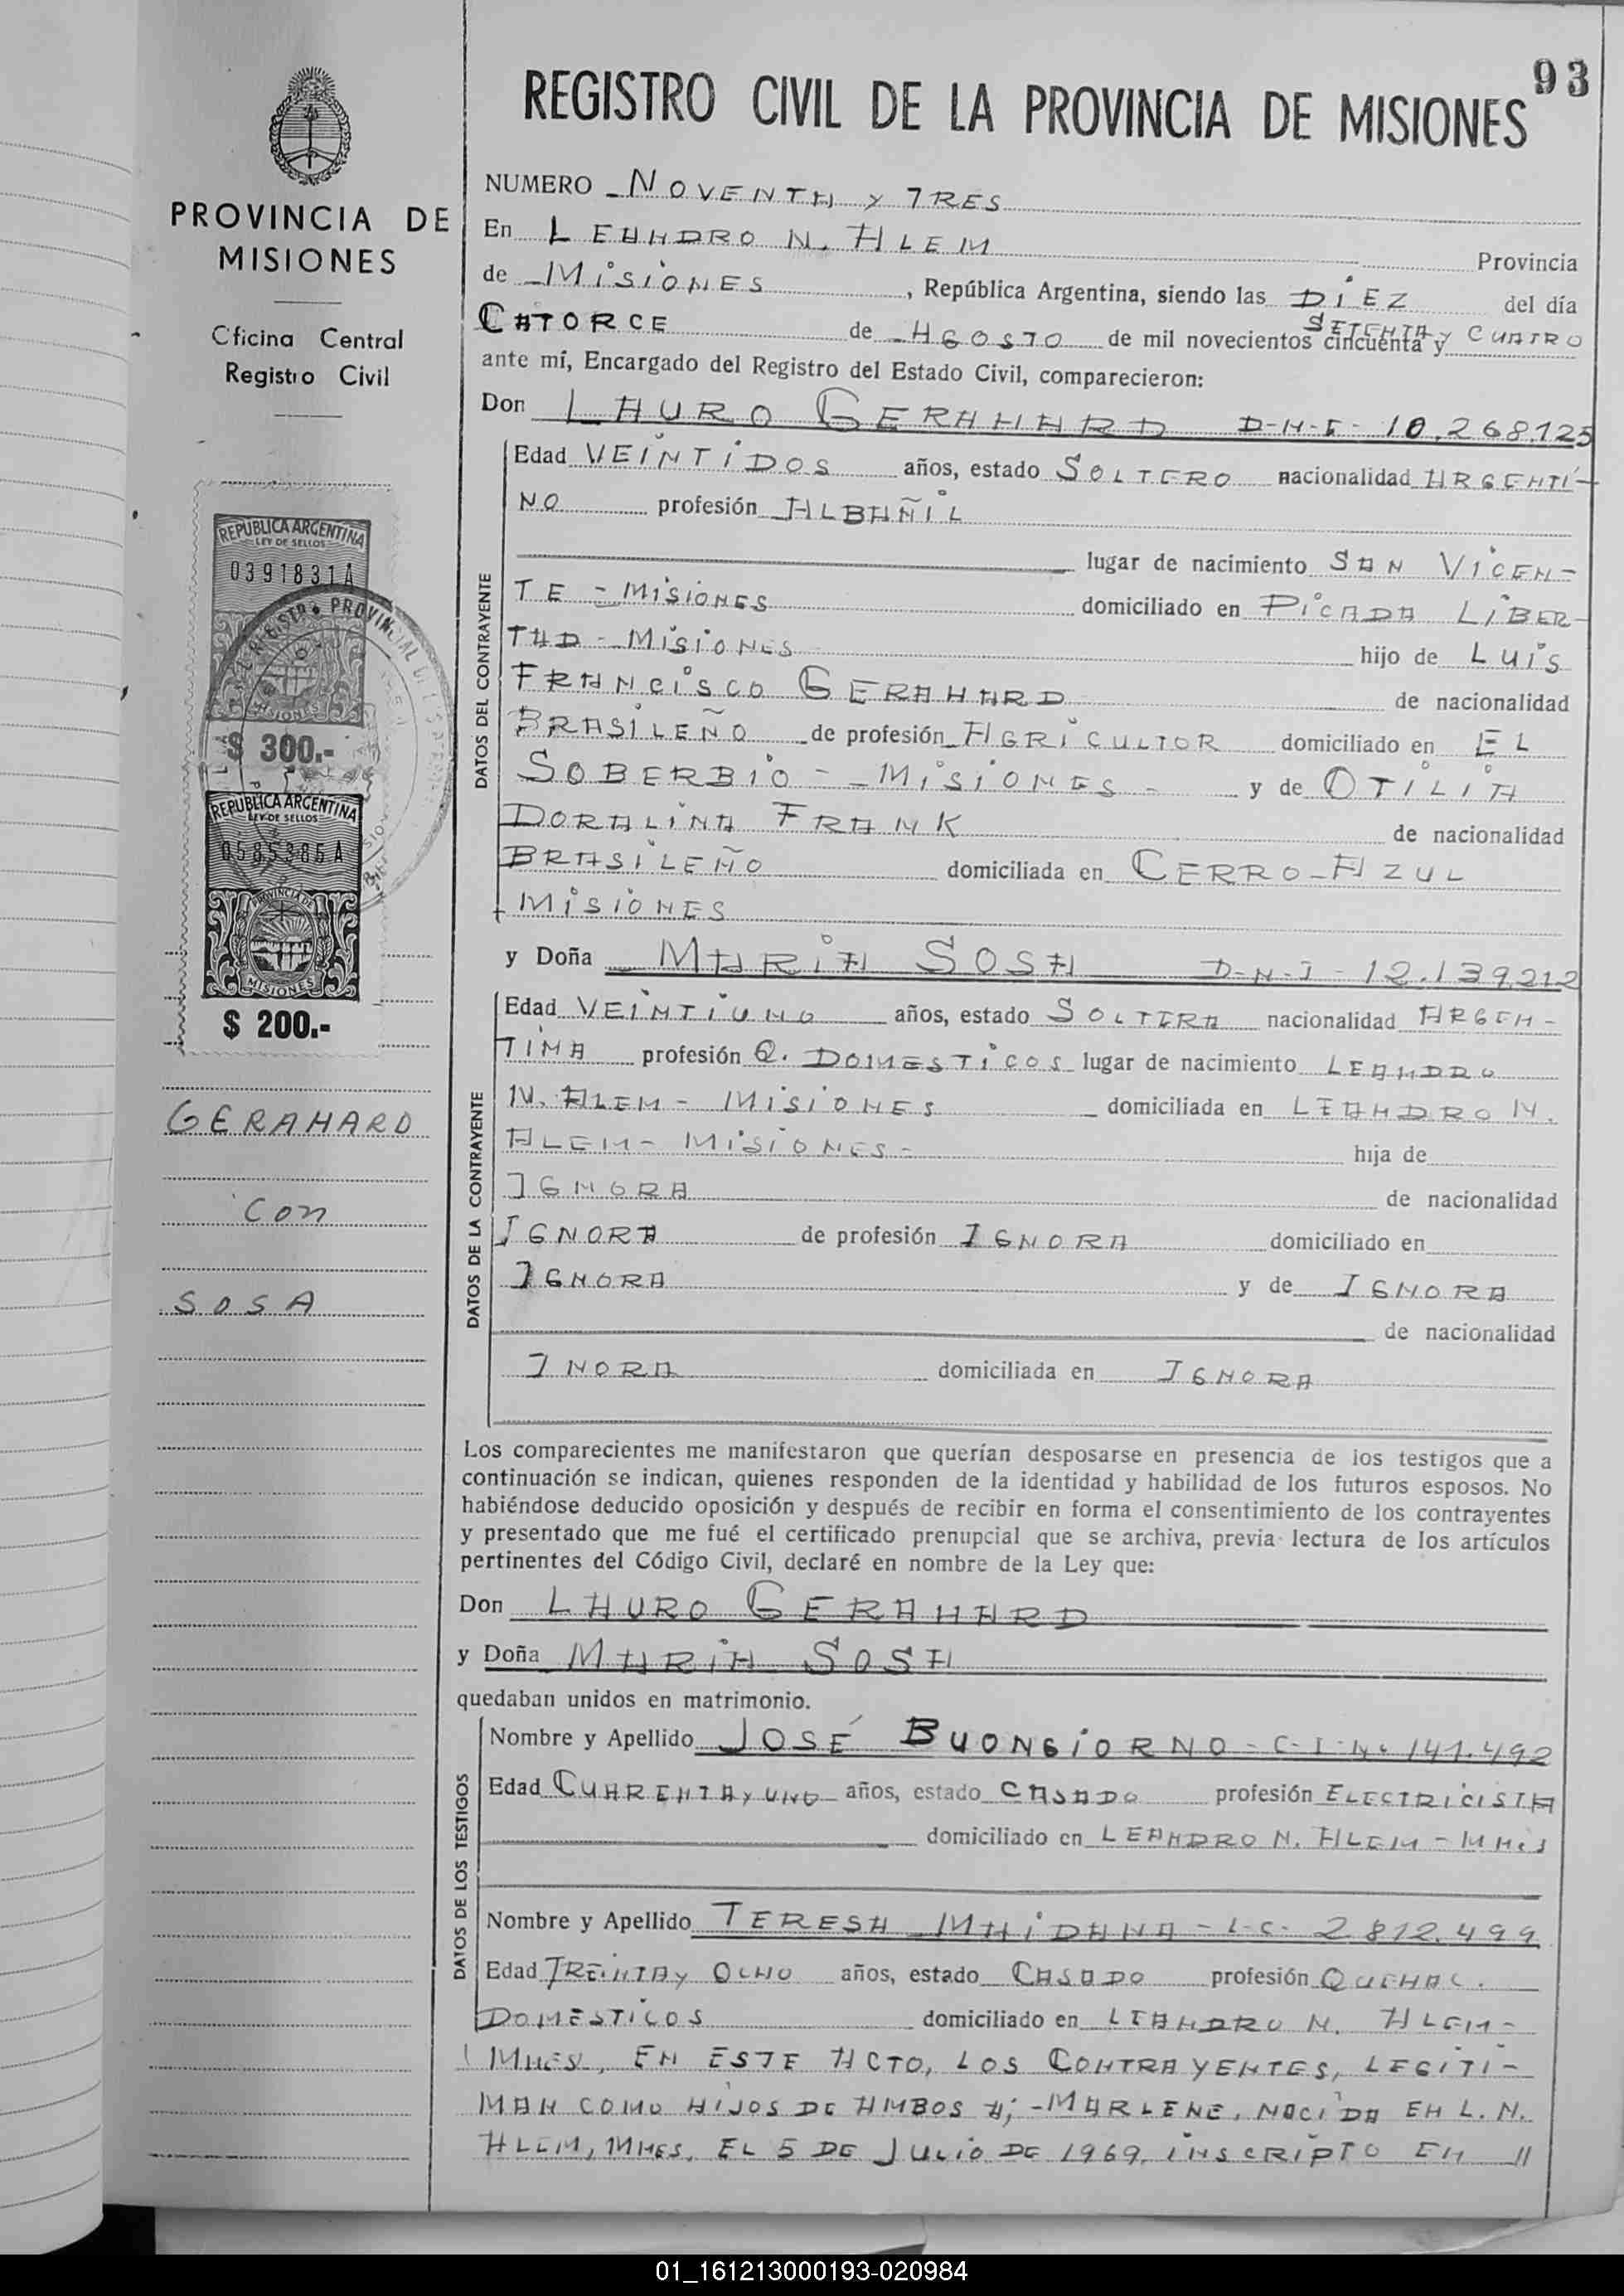 93
REGISTRO CIVIL DE LA PROVINCIA DE MISIONES
PROVINCIA DE
MISIONES
Oficina Central
Registro Civil
REPUBLICA ARGENTINA
LEY DE SELLOS
0391831A
MISIONES
$ 300.-
REPUBLICA ARGENTINA
LEY DE SELLOS
0585385A
PROVINCIA DE
MISIONES
$ 200.-
GERAHARD
Con
SOSA
NUMERO - NOVENTA Y TRES
En LEANDRO N. ALEM Provincia
de - MISIONES, República Argentina, siendo las DIEZ del día
CATORCE de - AGOSTO de mil novecientos cincuenta y SETENTA Y CUATRO
ante mí, Encargado del Registro del Estado Civil, comparecieron:
Don LAURO GERAHARD D-N-I- 10.268.125
DATOS DEL CONTRAYENTE
Edad VEINTIDOS años, estado SOLTERO nacionalidad ARGENTI-
NO profesión ALBAÑIL
lugar de nacimiento SAN VICEN-
TE - MISIONES domiciliado en PICADA LIBER-
TAD - MISIONES hijo de LUIS
FRANCISCO GERAHARD de nacionalidad
BRASILEÑO de profesión AGRICULTOR domiciliado en EL
SOBERBIO - MISIONES - y de OTILIA
DORALINA FRANK de nacionalidad
BRASILEÑO domiciliada en CERRO-AZUL
MISIONES
y Doña MARIA SOSA D-N-I- 12.139.212
DATOS DE LA CONTRAYENTE
Edad VEINTIUNO años, estado SOLTERA nacionalidad ARGEN-
TINA profesión Q. DOMESTICOS lugar de nacimiento LEANDRO
N. ALEM - MISIONES domiciliada en LEANDRO N.
ALEM - MISIONES - hija de
IGNORA de nacionalidad
IGNORA de profesión IGNORA domiciliado en
IGNORA y de IGNORA
de nacionalidad
INORA domiciliada en IGNORA
Los comparecientes me manifestaron que querían desposarse en presencia de los testigos que a
continuación se indican, quienes responden de la identidad y habilidad de los futuros esposos. No
habiéndose deducido oposición y después de recibir en forma el consentimiento de los contrayentes
y presentado que me fué el certificado prenupcial que se archiva, previa lectura de los artículos
pertinentes del Código Civil, declaré en nombre de la Ley que:
Don LAURO GERAHARD
y Doña MARIA SOSA
quedaban unidos en matrimonio.
DATOS DE LOS TESTIGOS
Nombre y Apellido JOSÉ BUONGIORNO - C-I-Nº 141.492
Edad CUARENTA Y UNO años, estado CASADO profesión ELECTRICISTA
domiciliado en LEANDRO N. ALEM - MNES
Nombre y Apellido TERESA MAIDANA - L-C- 2.812.499
Edad TREINTA Y OCHO años, estado CASADO profesión QUEHAC.
DOMESTICOS domiciliado en LEANDRO N. ALEM -
MNES, EN ESTE ACTO, LOS CONTRAYENTES, LEGITI-
MAN COMO HIJOS DE AMBOS A; - MARLENE, NACIDA EN L. N.
ALEM, MNES, EL 5 DE JULIO DE 1969, INSCRIPTO EN //
01_161213000193-020984